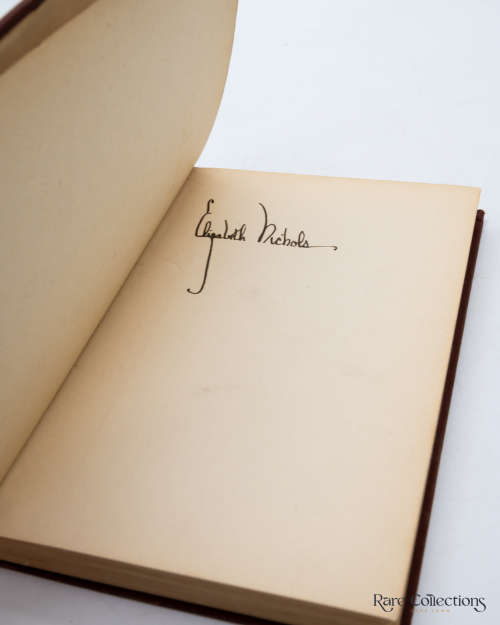 Elizabeth Nichols
Rare Collections